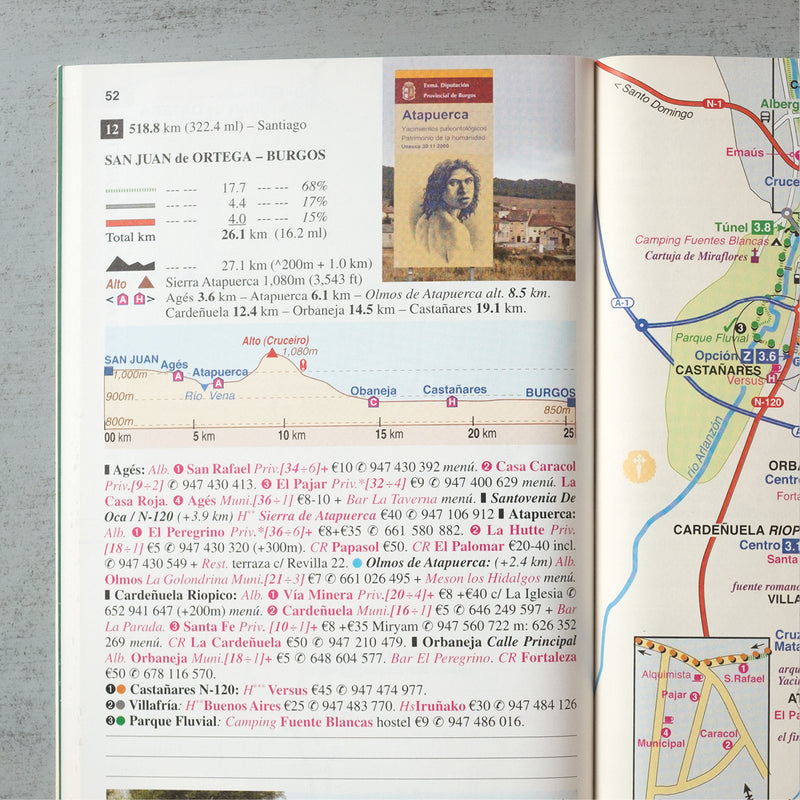 52
12 518.8 km (322.4 ml) – Santiago
SAN JUAN de ORTEGA – BURGOS
--- --- 17.7 --- --- 68%
--- --- 4.4 --- --- 17%
--- --- 4.0 --- --- 15%
Total km 26.1 km (16.2 ml)
--- --- 27.1 km (^200m + 1.0 km)
Alto Sierra Atapuerca 1,080m (3,543 ft)
< A H > Agés 3.6 km – Atapuerca 6.1 km – Olmos de Atapuerca alt. 8.5 km.
Cardeñuela 12.4 km – Orbaneja 14.5 km – Castañares 19.1 km.
Exma. Diputación
Provincial de Burgos
Atapuerca
Yacimientos paleontológicos
Patrimonio de la humanidad
Unesco 30 11 2000
Alto (Cruceiro)
1,080m
SAN JUAN
Agés
Atapuerca
1,000m
A
A
Río Vena
900m
Obaneja
Castañares
BURGOS
C
H
850m
800m
00 km 5 km 10 km 15 km 20 km 25
❚ Agés: Alb. ❶ San Rafael Priv.[34÷6]+ €10 ✆ 947 430 392 menú. ❷ Casa Caracol
Priv.[9÷2] ✆ 947 430 413. ❸ El Pajar Priv.*[32÷4] €9 ✆ 947 400 629 menú. La
Casa Roja. ❹ Agés Muni.[36÷1] €8-10 + Bar La Taverna menú. ❚ Santovenia De
Oca / N-120 (+3.9 km) H** Sierra de Atapuerca €40 ✆ 947 106 912 ❚ Atapuerca:
Alb. ❶ El Peregrino Priv.*[36÷6]+ €8+€35 ✆ 661 580 882. ❷ La Hutte Priv.
[18÷1] €5 ✆ 947 430 320 (+300m). CR Papasol €50. CR El Palomar €20-40 incl.
✆ 947 430 549 + Rest. terraza c/ Revilla 22. ● Olmos de Atapuerca: (+2.4 km) Alb.
Olmos La Golondrina Muni.[21÷3] €7 ✆ 661 026 495 + Meson los Hidalgos menú.
❚ Cardeñuela Riopico: Alb. ❶ Vía Minera Priv.[20÷4]+ €8 +€40 c/ La Iglesia ✆
652 941 647 (+200m) menú. ❷ Cardeñuela Muni.[16÷1] €5 ✆ 646 249 597 + Bar
La Parada. ❸ Santa Fe Priv. [10÷1]+ €8 +€35 Miryam ✆ 947 560 722 m: 626 352
269 menú. CR La Cardeñuela €50 ✆ 947 210 479. ❚ Orbaneja Calle Principal
Alb. Orbaneja Muni.[18÷1]+ €5 ✆ 648 604 577. Bar El Peregrino. CR Fortaleza
€50 ✆ 678 116 570.
❶● Castañares N-120: H*** Versus €45 ✆ 947 474 977.
❷● Villafría: H** Buenos Aires €25 ✆ 947 483 770. Hs Iruñako €30 ✆ 947 484 126
❸● Parque Fluvial: Camping Fuente Blancas hostel €9 ✆ 947 486 016.
< Santo Domingo
N-1
Alberg
Emaús
Cruce
Túnel 3.8
Camping Fuentes Blancas
Cartuja de Miraflores
A-1
❸
Parque Fluvial
Opción Z 3.6
CASTAÑARES
Versus H
N-120
A
río Arlanzón
ORBA
Centro
Forta
CARDEÑUELA RIOP
Centro 3.1
Santa
fuente romano
VILLA
Cruz
Mata
arqu
Yacim
AT
El Pa
el fin
Alquimista
❶
S.Rafael
Pajar ❸
❹
Municipal
Caracol
❷